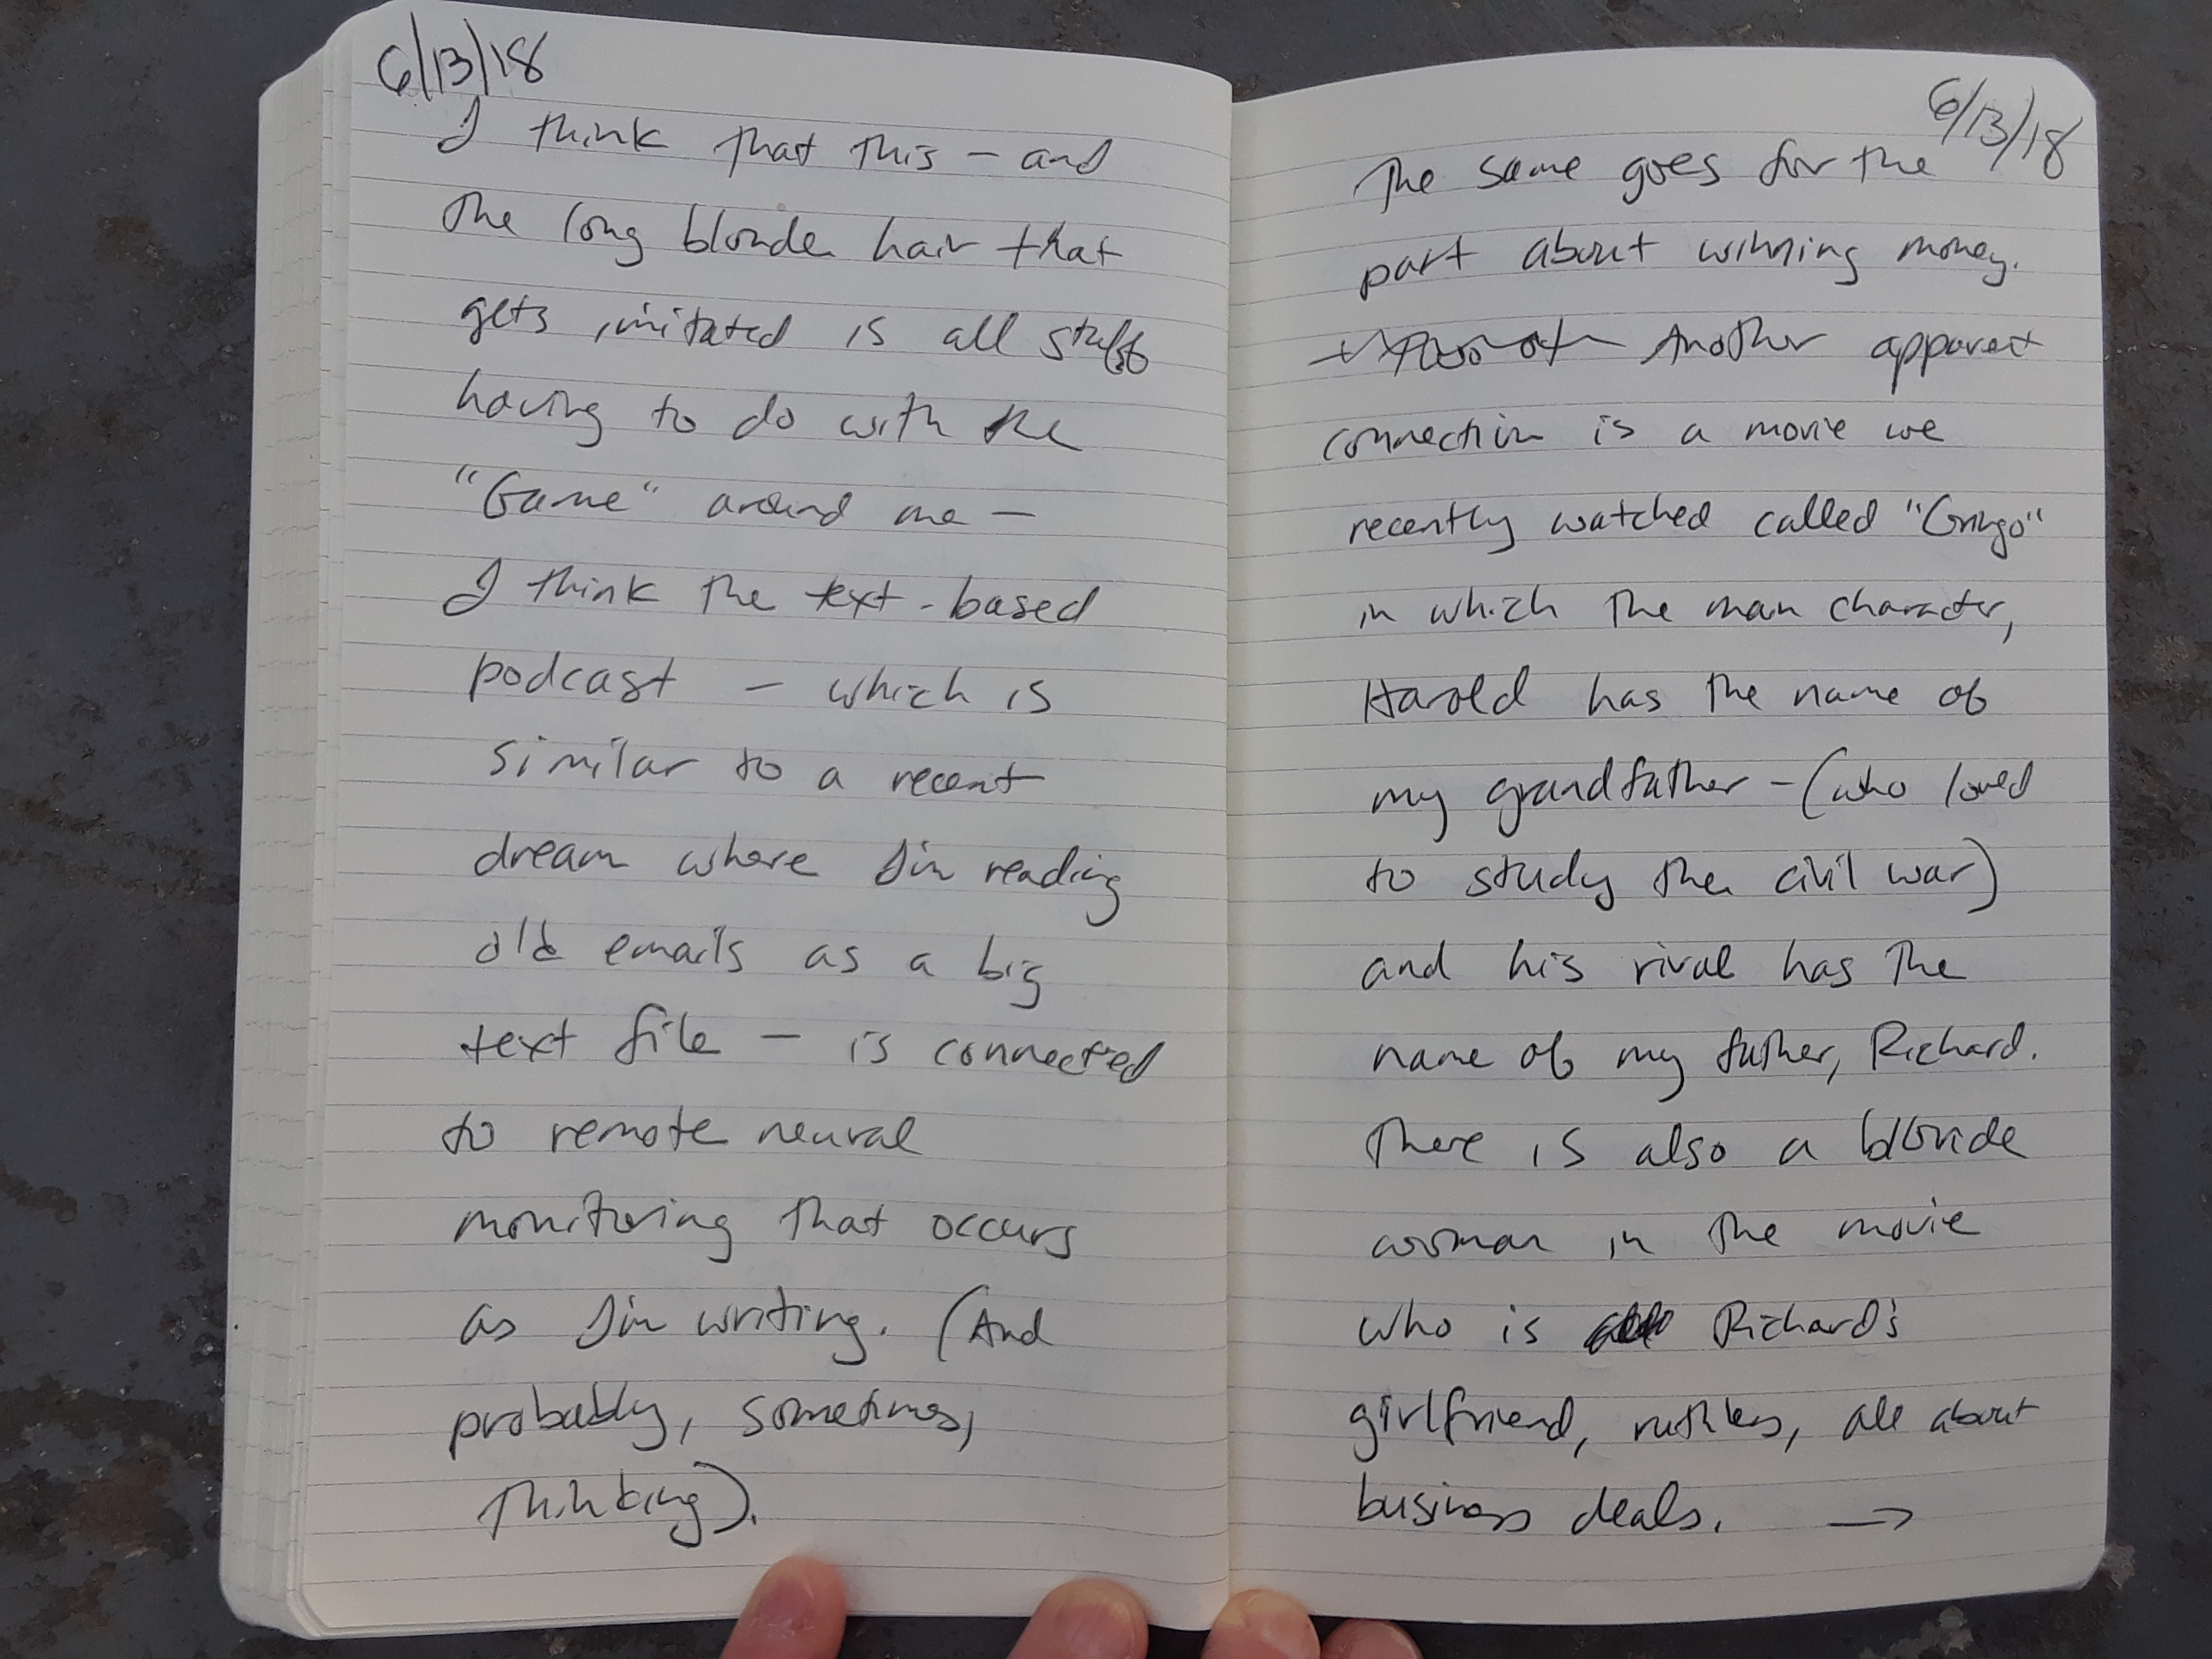 6/13/18
I think that this – and
the long blonde hair that
gets imitated is all stuff
having to do with the
"Game" around me –
I think the text-based
podcast – which is
similar to a recent
dream where I'm reading
old emails as a big
text file – is connected
to remote neural
monitoring that occurs
as I'm writing. (And
probably, sometimes,
thinking).
6/13/18
The same goes for the
part about winning money.
Another apparent
connection is a movie we
recently watched called "Gringo"
in which the man character,
Harold has the name of
my grandfather – (who loved
to study the civil war)
and his rival has the
name of my father, Richard.
There is also a blonde
woman in the movie
who is Richard's
girlfriend, ruthless, all about
business deals. →